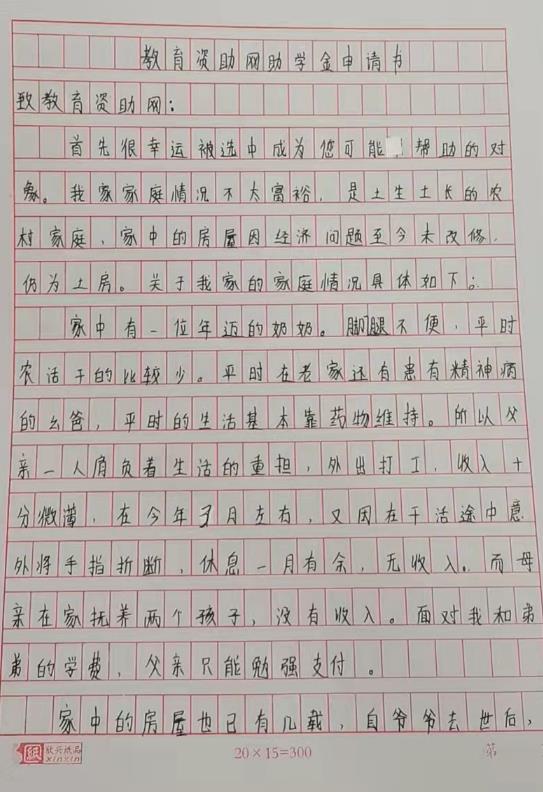 教育资助网助学金申请书
致教育资助网：
首先很幸运被选中成为您可能 帮助的对
象。我家家庭情况不太富裕，是土生土长的农
村家庭，家中的房屋因经济问题至今未改修，
仍为土房。关于我家的家庭情况具体如下：
家中有一位年迈的奶奶。脚腿不便，平时
农活干的比较少。平时在老家还有患有精神病
的幺爸，平时的生活基本靠药物维持。所以父
亲一人肩负着生活的重担，外出打工，收入十
分微薄，在今年3月左右，又因在干活途中意
外将手指折断，休息一月有余，无收入。而母
亲在家抚养两个孩子，没有收入。面对我和弟
弟的学费，父亲只能勉强支付。
家中的房屋也已有几载，自爷爷去世后，
纸 欣兴纸品 xinxin 20×15=300 第